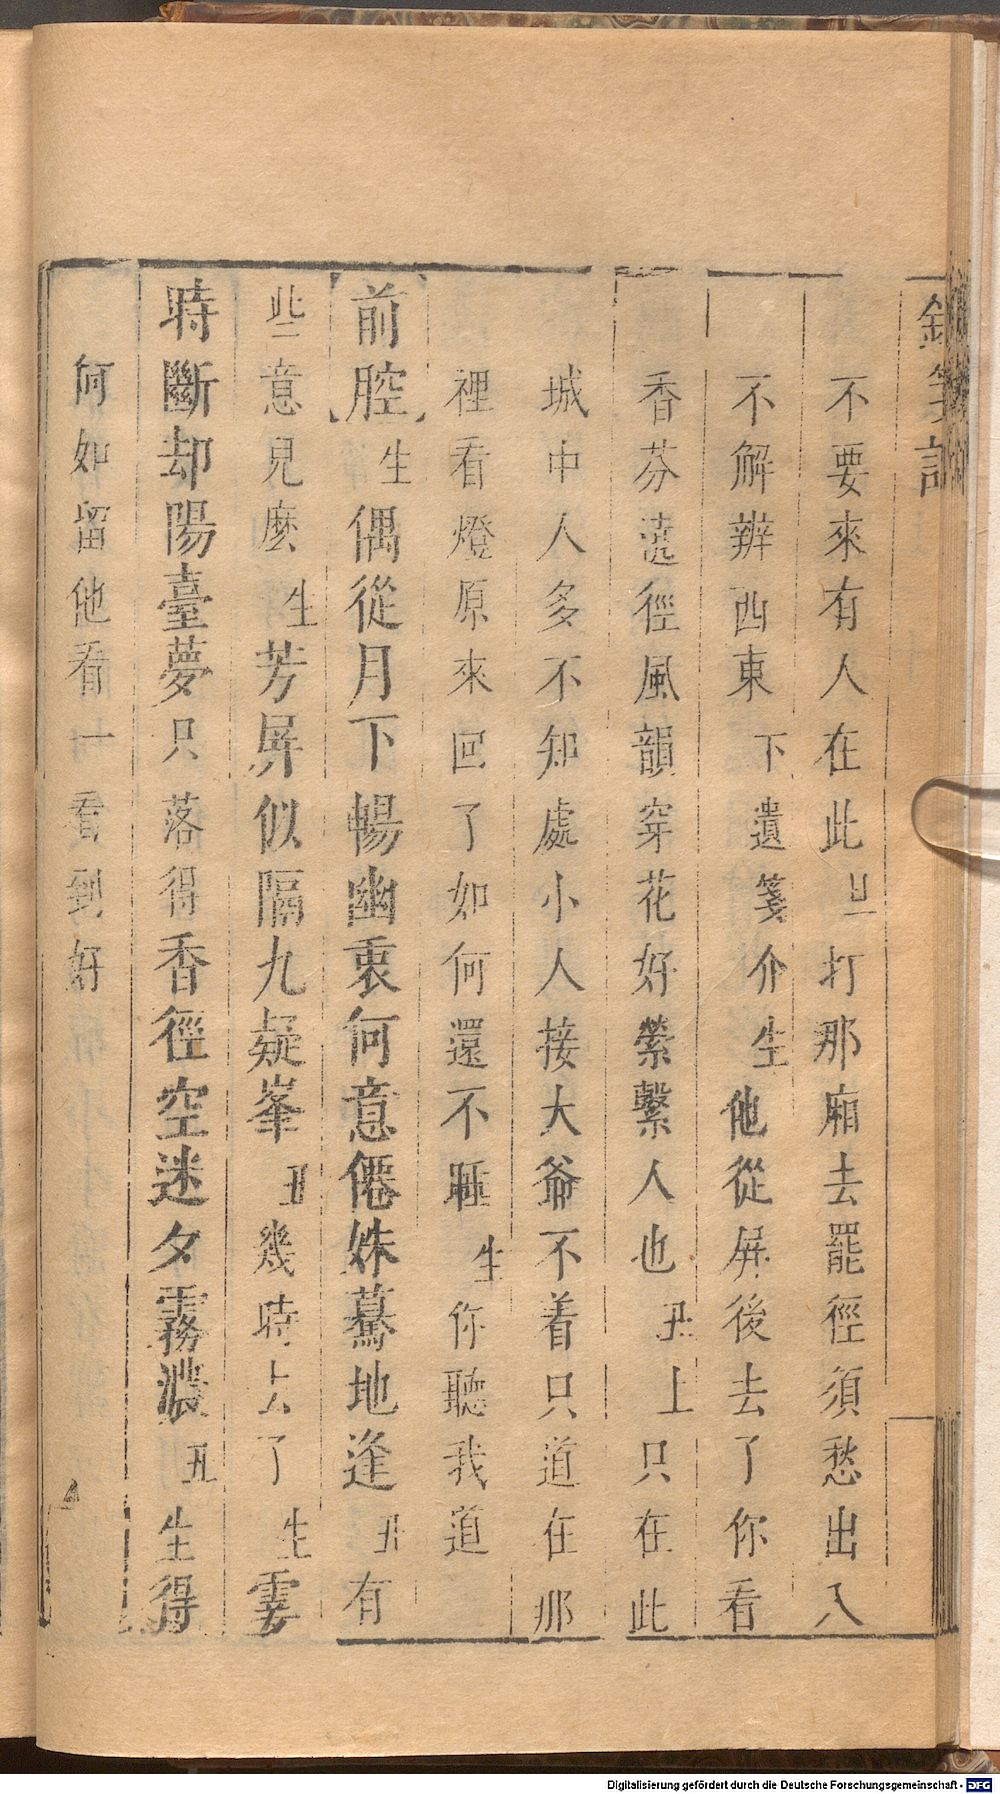 不要來有人在此旦打那廂去罷徑須愁出入
不解辨西東下遺箋介生他從屏後去了你看
香芬遶徑風韻穿花好縈繫人也丑上只在此
城中人多不知處小人接大爺不着只道在那
裡看燈原來回了如何還不睡生你聽我道
【前腔】生偶從月下暢幽衷何意僊姝驀地逢丑有
些意見麽生芳屏似隔九疑峯丑幾時去了生霎
時斷却陽臺夢只落得香徑空迷夕霧濃丑生得
何如留他看一看到好
Digitalisierung gefördert durch die Deutsche Forschungsgemeinschaft - DFG